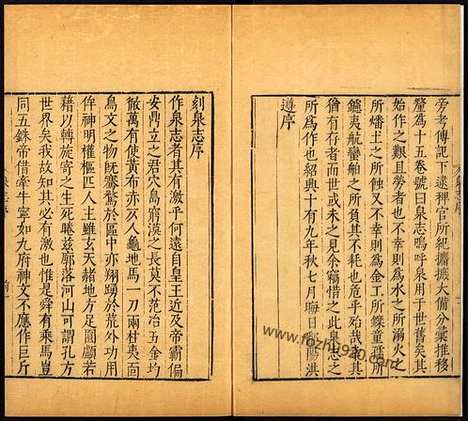 旁考傳記下逮稗官所紀攟摭大備分彙推移
釐為十五卷號曰泉志嗚呼泉用于世舊矣其
始作之艱且勞者也不幸則為水之所溺火之
所燔土之所蝕又不幸則為金工所鑠童孺所
鑪夷航蠻舶之所負其不耗也危乎殆哉其
猶有存者而世或未之見余竊惜之此泉志之
所為作也紹興十有九年秋七月晦日鄱陽洪
遵序
刻泉志序
作泉志者其有激乎何遠自皇王近及帝霸偏
安鼎立之君穴島窮漠之長莫不范冶五金均
徹萬有使黃布亦云人龜地馬一刀兩村夷面
鳥文之物既騖驚於區中亦翔踴於荒外功用
侔神明權樞匹人主雖玄天赭地方足圓顱若
藉以轉旋寄之生死睠茲廓落河山可謂孔方
世界矣我故知其必有激也惟是舜有乘馬豈
同五銖帝借牽牛寧如九府神文不應作巨斤
www.fozhu920.com